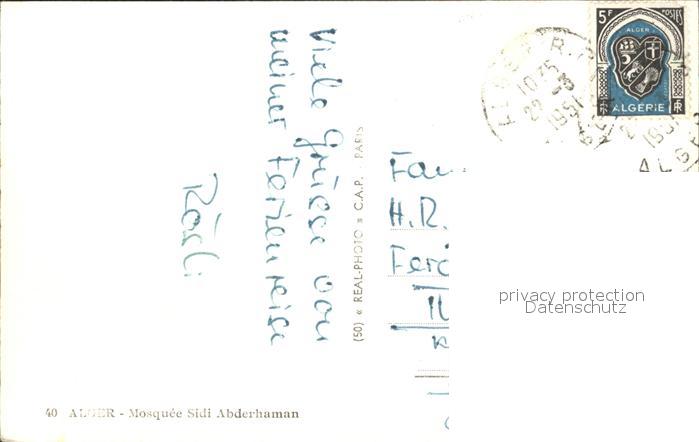 Viele Grüsse von
meiner Ferienreise
Rösli
(50) « REAL-PHOTO » C.A.P. - PARIS
40 ALGER - Mosquée Sidi Abderhaman
5F POSTES
ALGER
ALGERIE
RF RF
ALGER R.P.
10 45
22 -3
1951
1951
ALGE
Fam
H.R.
Ferd
privacy protection
Datenschutz